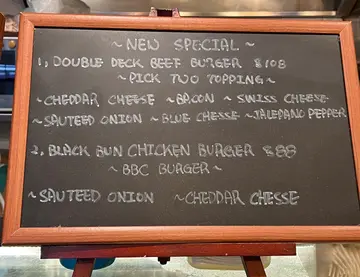 ~ NEW SPECIAL ~
1, DOUBLE DECK BEEF BURGER $108
~ PICK TWO TOPPING ~
~ CHEDDAR CHEESE ~ BACON ~ SWISS CHEESE
~ SAUTEED ONION ~ BLUE CHESSE ~ JALEPANO PEPPER
2, BLACK BUN CHICKEN BURGER $88
~ BBC BURGER ~
~ SAUTEED ONION ~ CHEDDAR CHESSE